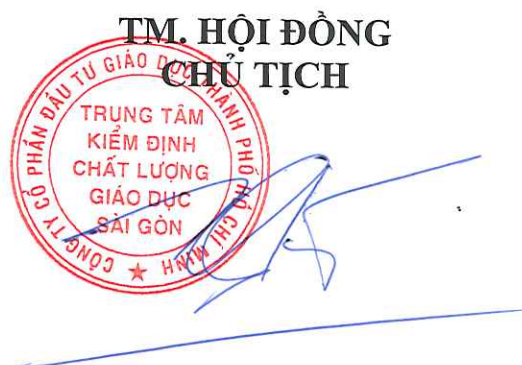 TM. HỘI ĐỒNG
CHỦ TỊCH
CÔNG TY CỔ PHẦN ĐẦU TƯ GIÁO DỤC THÀNH PHỐ HỒ CHÍ MINH
TRUNG TÂM
KIỂM ĐỊNH
CHẤT LƯỢNG
GIÁO DỤC
SÀI GÒN